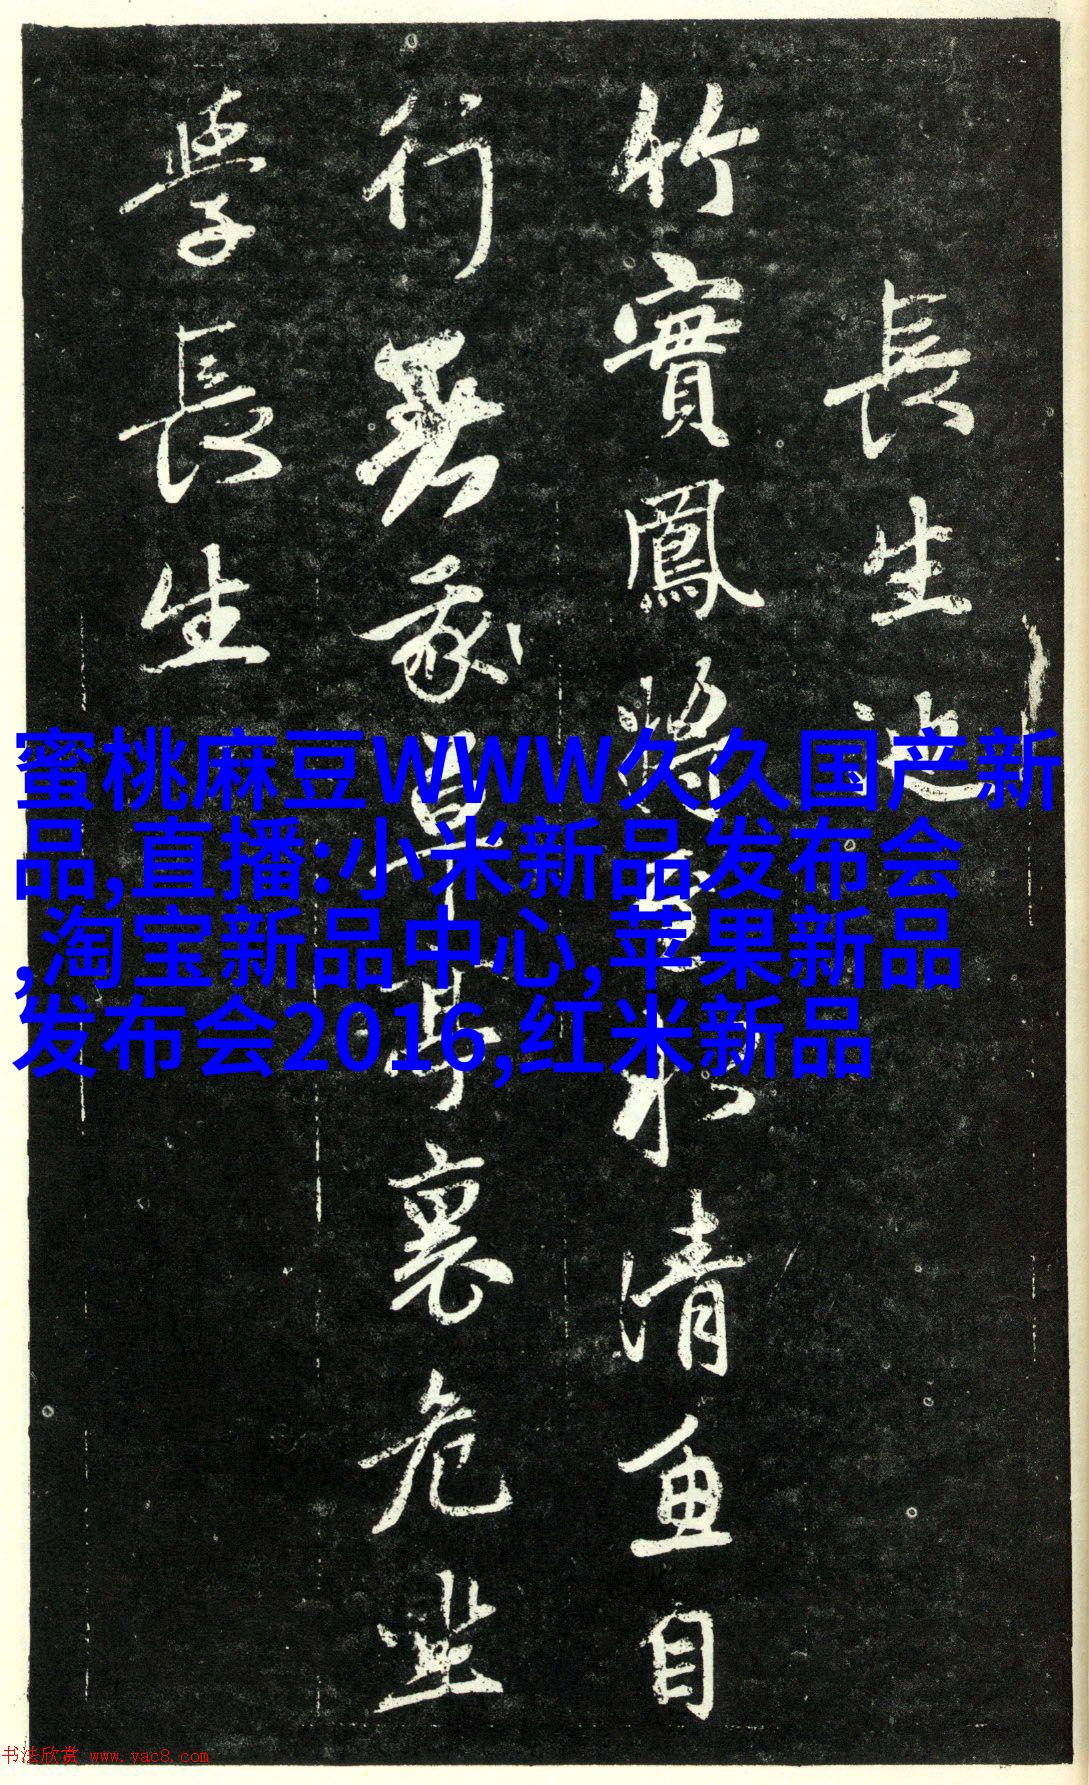 長生池
竹實鳳將至水清魚自
行亭裏危坐
學長生
蜜桃麻豆WWW久久国产新
品,直播:小米新品发布会
,淘宝新品中心,苹果新品
发布会2016,红米新品
书法欣赏 www.yac8.com